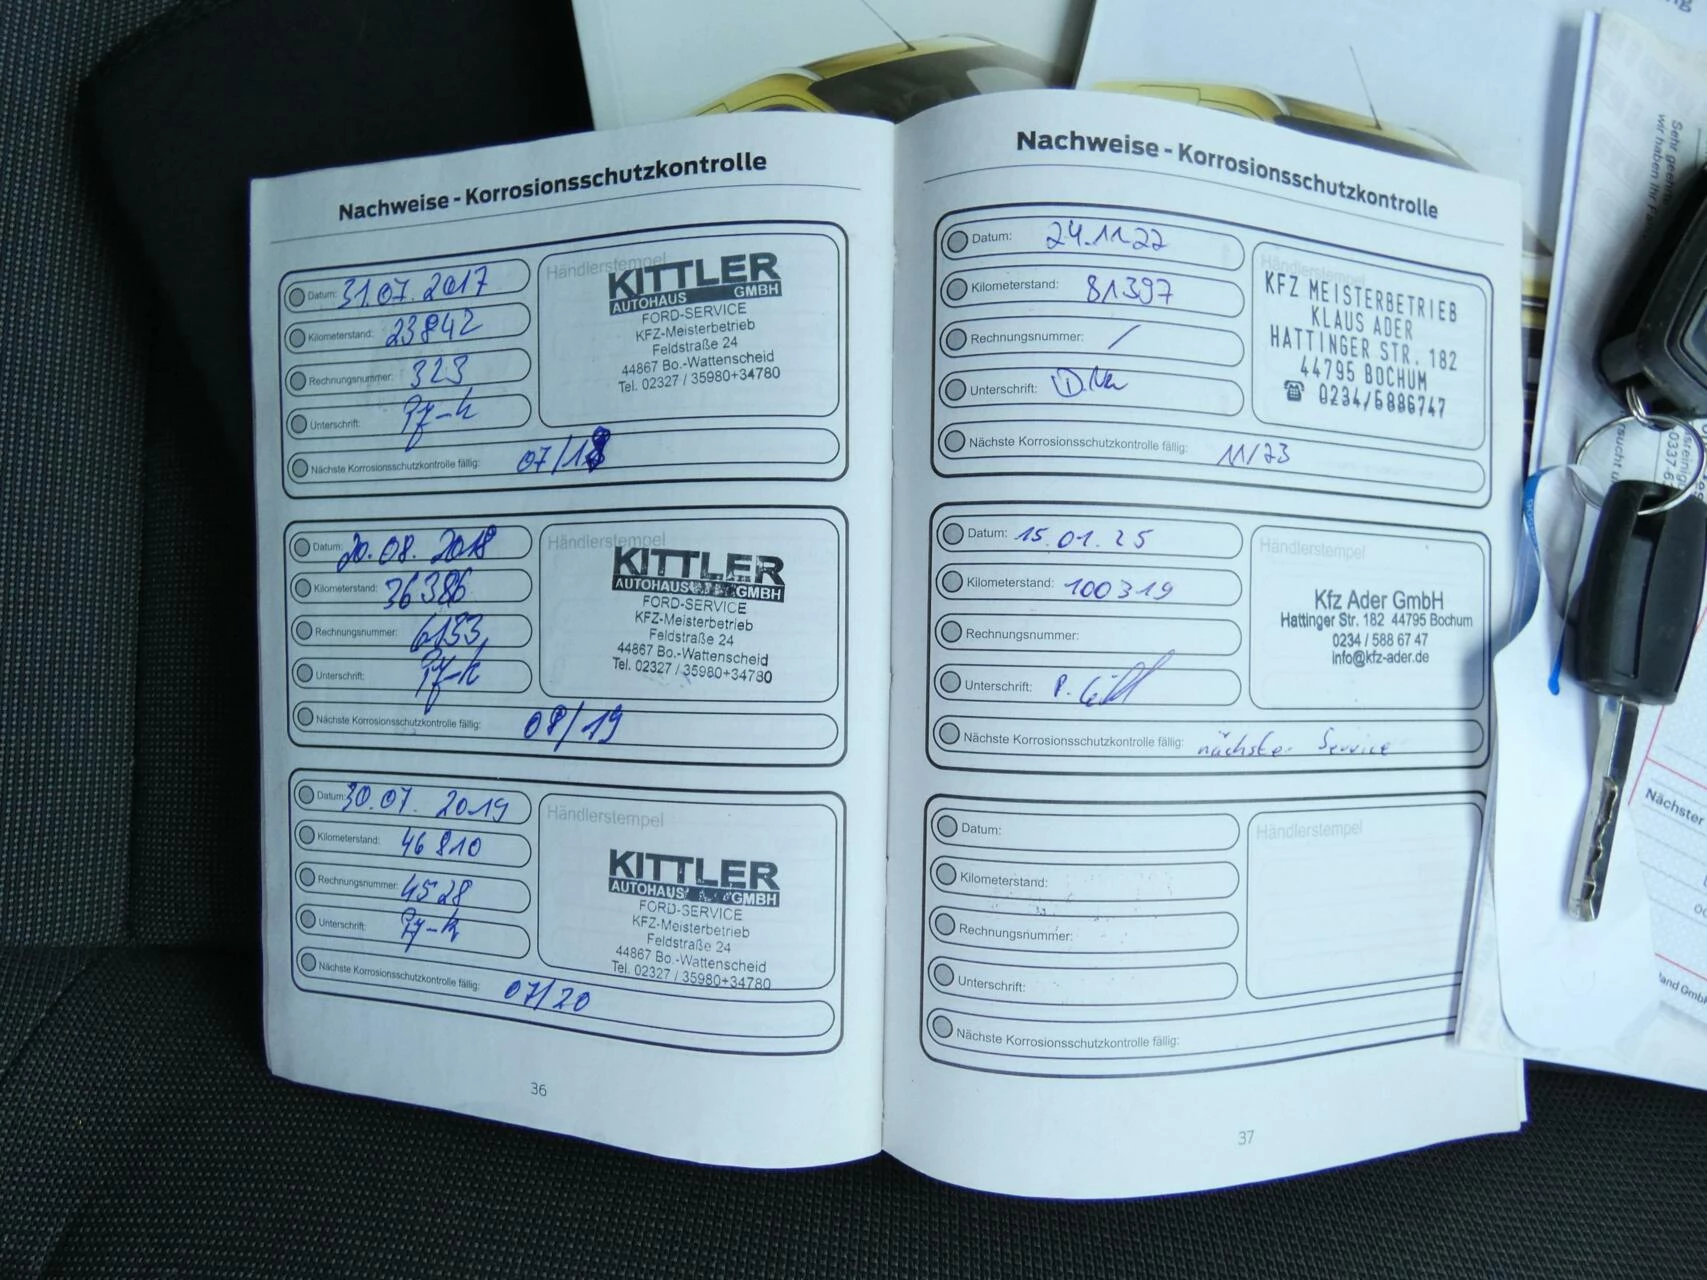 Nachweise - Korrosionsschutzkontrolle
Datum: 31.07.2017
Kilometerstand: 23842
Rechnungsnummer: 323
Unterschrift:
Nächste Korrosionsschutzkontrolle fällig: 07/18
Händlerstempel
KITTLER
AUTOHAUS GMBH
FORD-SERVICE
KFZ-Meisterbetrieb
Feldstraße 24
44867 Bo.-Wattenscheid
Tel. 02327 / 35980+34780
Datum: 20.08.2018
Kilometerstand: 36386
Rechnungsnummer: 6153
Unterschrift:
Nächste Korrosionsschutzkontrolle fällig: 08/19
Händlerstempel
KITTLER
AUTOHAUS GMBH
FORD-SERVICE
KFZ-Meisterbetrieb
Feldstraße 24
44867 Bo.-Wattenscheid
Tel. 02327 / 35980+34780
Datum: 30.07.2019
Kilometerstand: 46810
Rechnungsnummer: 4528
Unterschrift:
Nächste Korrosionsschutzkontrolle fällig: 07/20
Händlerstempel
KITTLER
AUTOHAUS GMBH
FORD-SERVICE
KFZ-Meisterbetrieb
Feldstraße 24
44867 Bo.-Wattenscheid
Tel. 02327 / 35980+34780
36
Nachweise - Korrosionsschutzkontrolle
Datum: 24.11.22
Kilometerstand: 81397
Rechnungsnummer: /
Unterschrift:
Nächste Korrosionsschutzkontrolle fällig: 11/23
Händlerstempel
KFZ MEISTERBETRIEB
KLAUS ADER
HATTINGER STR. 182
44795 BOCHUM
☎ 0234/5886747
Datum: 15.01.25
Kilometerstand: 100319
Rechnungsnummer:
Unterschrift:
Nächste Korrosionsschutzkontrolle fällig: nächster Service
Händlerstempel
Kfz Ader GmbH
Hattinger Str. 182 44795 Bochum
0234 / 588 67 47
info@kfz-ader.de
Datum:
Kilometerstand:
Rechnungsnummer:
Unterschrift:
Nächste Korrosionsschutzkontrolle fällig:
Händlerstempel
37
wir haben Ihr
Nächster